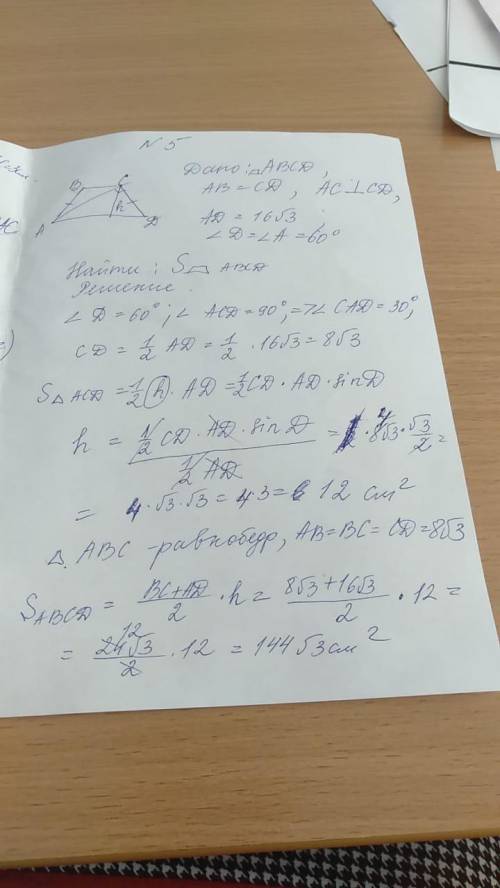 N 5
Дано: ABCD,
AB = CD, AC ⊥ CD,
AD = 16√3;
∠D = ∠A = 60°
B C
A h D
Найти: S ABCD
Решение.
∠D = 60°; ∠ACD = 90°, => ∠CAD = 30°;
CD = 1/2 AD = 1/2 · 16√3 = 8√3
S△ACD = 1/2 h · AD = 1/2 CD · AD · sin D
h = (1/2 CD · AD · sin D)/(1/2 AD) = 8√3 · √3/2 =
= 4 · √3 · √3 = 4 3 = 12 см²
△ABC - равнобедр, AB = BC = CD = 8√3
S ABCD = (BC + AD)/2 · h = (8√3 + 16√3)/2 · 12 =
= 24√3/2 · 12 = 144√3 см²